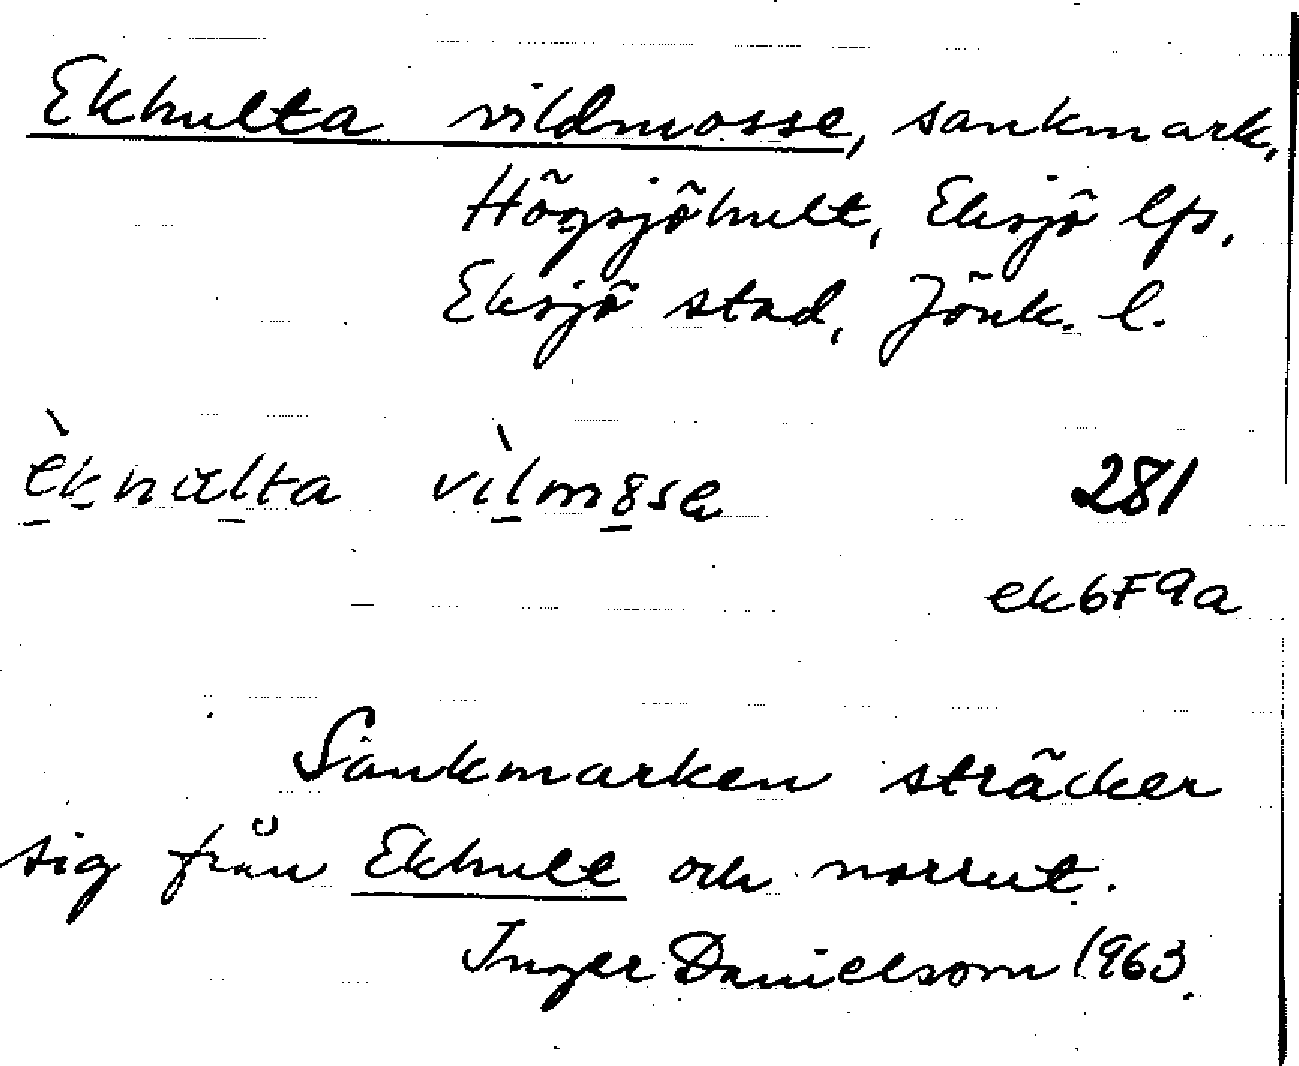 Ekhulta vildmosse, sankmark,
Högsjöhult, Eksjö lfs.
Eksjö stad, Jönk. l.
èkhulta vìlmosse 281
ek6F9a
Sankmarken sträcker
sig från Ekhult och norrut.
Inger Danielsson 1963.